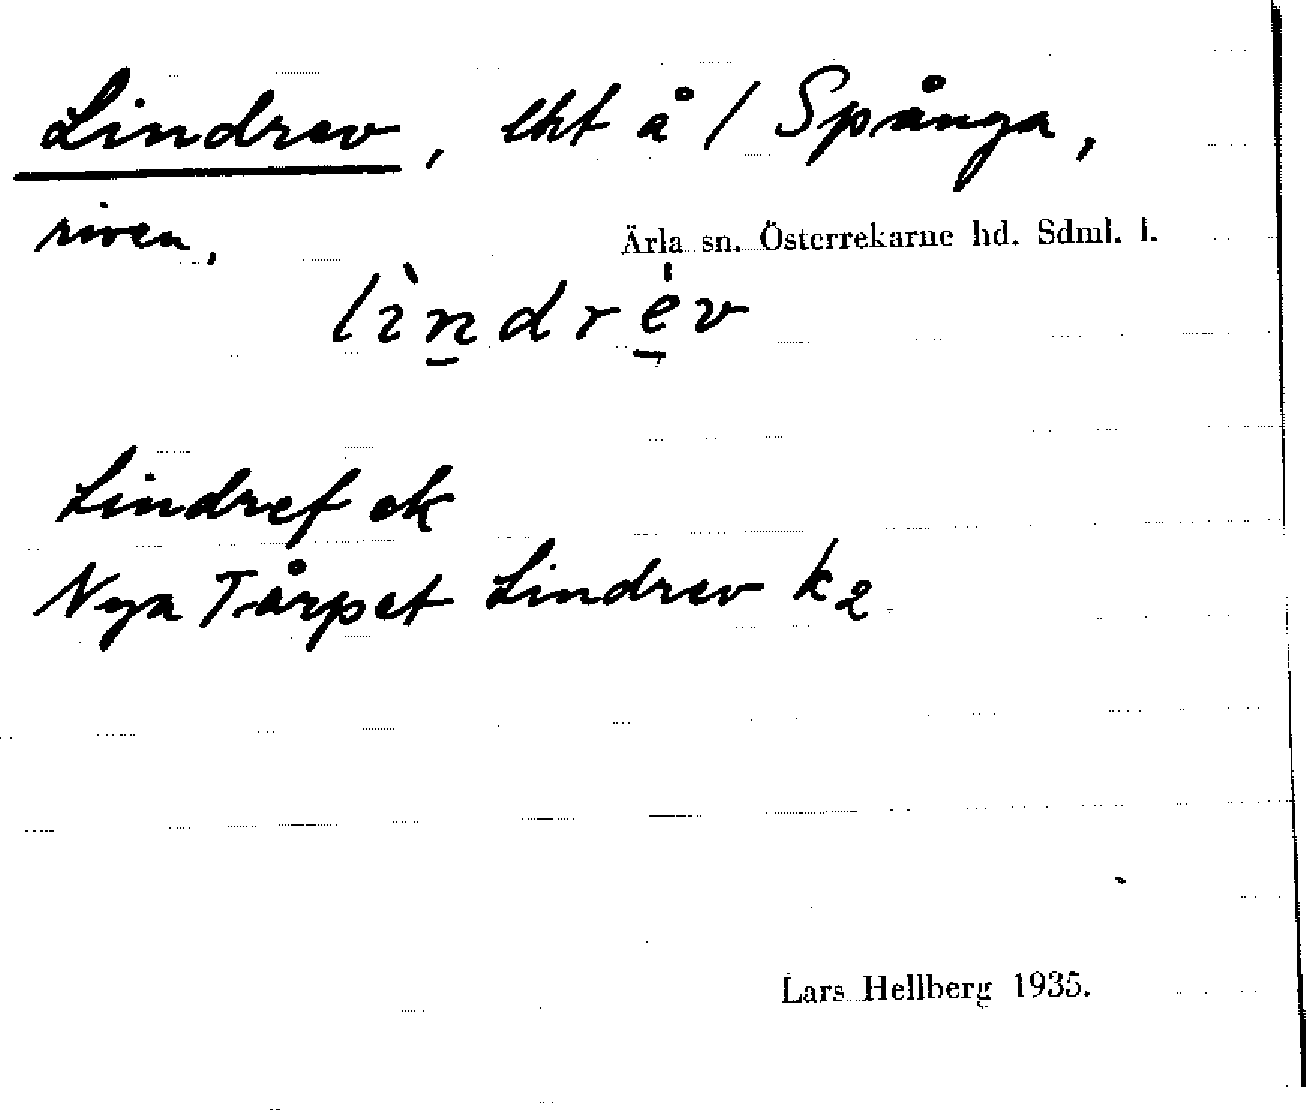 Lindrev, lht å / Spånga,
riven.
Ärla sn. Österrekarne hd. Sdml. l.
lìndrėv
Lindref ek
Nya Tårpet Lindrev k2
Lars Hellberg 1935.